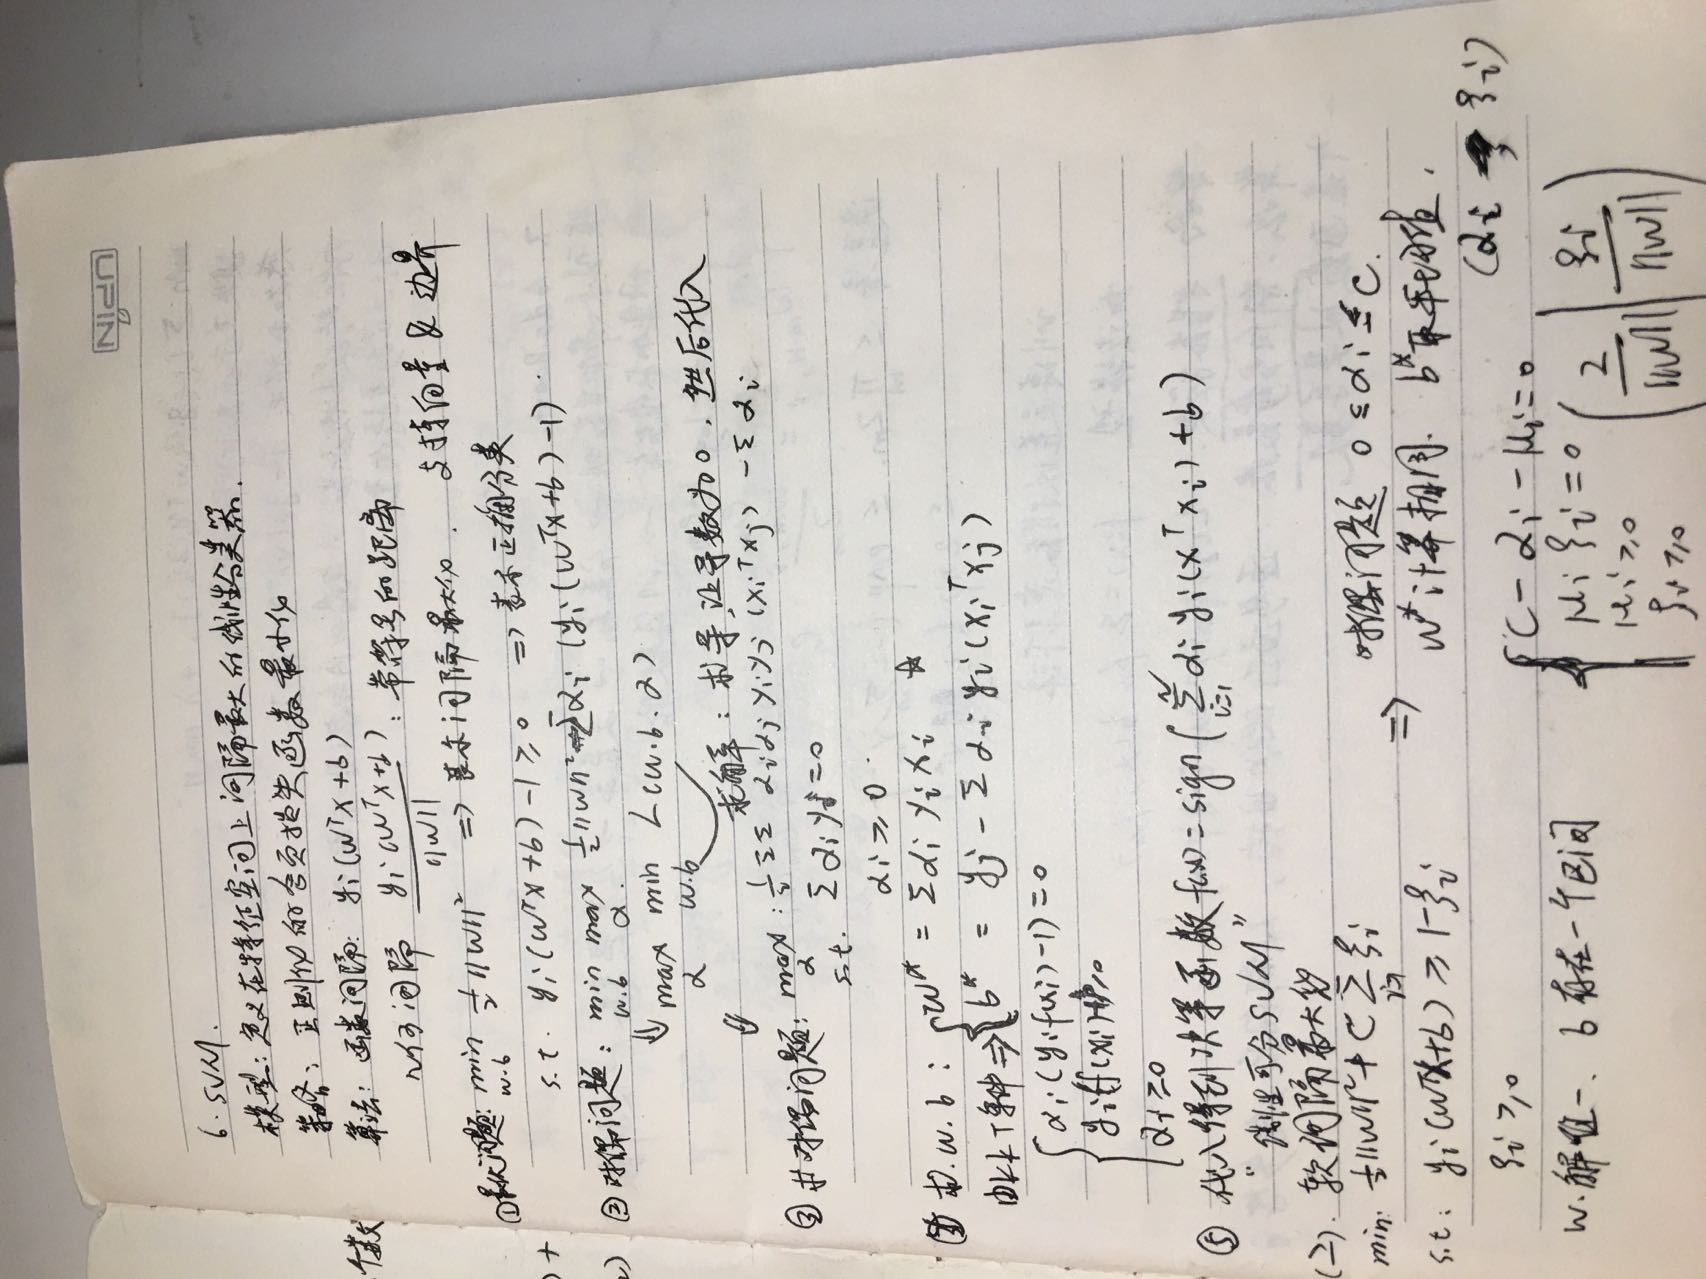 UPIN
6. SVM.
模型: 定义在特征空间上间隔最大的线性分类器.
策略: 正则化的合页损失函数最小化
算法: 函数间隔: yi(wᵀx+b)
几何间隔 yi(wᵀx+b)/||w|| : 带符号的距离
①最优问题: min w.b ½||w||² => 表示间隔最大化. 支持向量 & 边界
s.t. yi(wᵀx+b)-1≥0 => 表示正确分类
②对偶问题: min w.b max α. ½||w||² - Σαi (yi(wᵀx+b)-1)
⇓ max α min w.b L(w.b.α)
求解: 求导,让导数为0, 然后代入
⇓
③求对偶问题: max α : ½ΣΣ αiαjyiyj (xiᵀxj) - Σαi
s.t. Σαiyi=0
αi≥0
④求.w.b: { w* = Σαiyixi ☆
由KKT条件=> b* = yj - Σαiyi(xiᵀxj)
{ αi(yif(xi)-1)=0
yif(xi)-1≥0
αi≥0
⑤ 代入得到决策函数f(x)=sign(Σ i=1 N αiyi(xᵀxi)+b)
"线性可分SVM"
(二). 软间隔最大化
min: ½||w||²+CΣ i=1 ξi => 对偶问题 0≤αi≤C.
s.t: yi(wᵀx+b)≥1-ξi w*计算相同. b*取平均值.
ξi≥0 (αi ξi)
w.解唯一、b存在一个区间
{ C-αi-μi=0
μiξi=0 ( 2/||w|| | ξi/||w|| )
μi≥0
ξi≥0
个数
)+